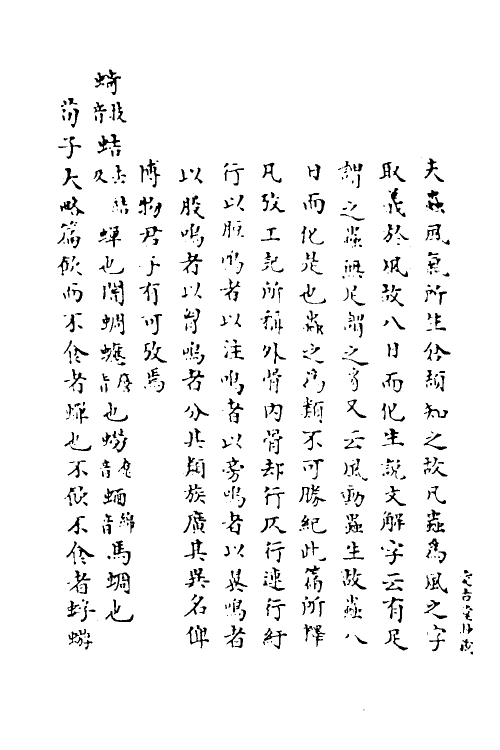 夫蟲風氣所生倉頡知之故凡蟲為風之字
取義於風故八日而化生說文解字云有足
謂之蟲無足謂之豸又云風動蟲生故蟲八
日而化是也蟲之為類不可勝紀此篇所釋
凡攷工記所稱外骨内骨却行仄行連行紆
行以脰鳴者以注鳴者以旁鳴者以翼鳴者
以股鳴者以胷鳴者分其類族廣其異名俾
博物君子有可攷焉
音技蛣去結反蟬也闇蜩也蟧音蝒音綿馬蜩也
荀子大略篇飲而不食者蟬也不飲不食者蜉蝣